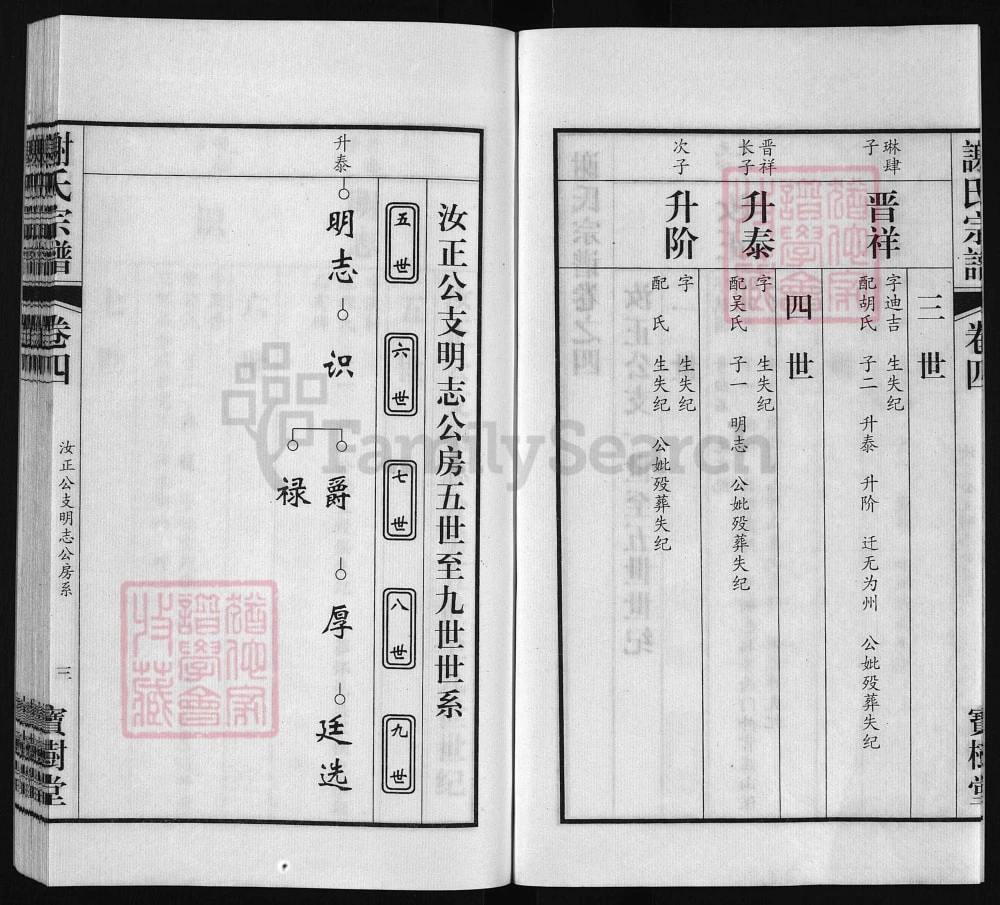 謝氏宗譜
卷四
寶樹堂
三世
琳肆子
晋祥
字迪吉 生失纪
配胡氏 子二 升泰 升阶 迁无为州 公妣殁葬失纪
四世
晋祥长子
升泰
字 生失纪
配吴氏 子一 明志 公妣殁葬失纪
次子
升阶
字 生失纪
配 氏 生失纪 公妣殁葬失纪
汝正公支明志公房五世至九世世系
五世
六世
七世
八世
九世
升泰
明志
识
爵
厚
廷选
禄
謝氏宗譜
卷四
汝正公支明志公房系
三
寶樹堂
FamilySearch